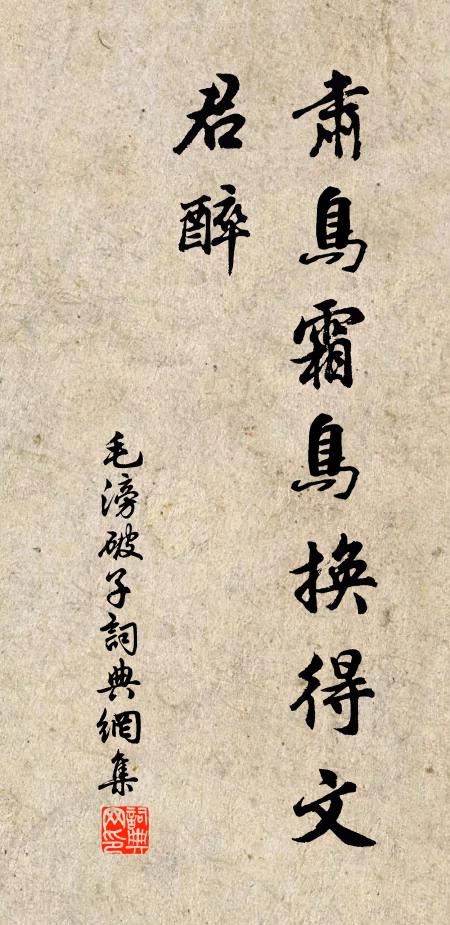 肅鳥霜鳥換得文
君醉
毛滂破子詞典網集
詞典網印